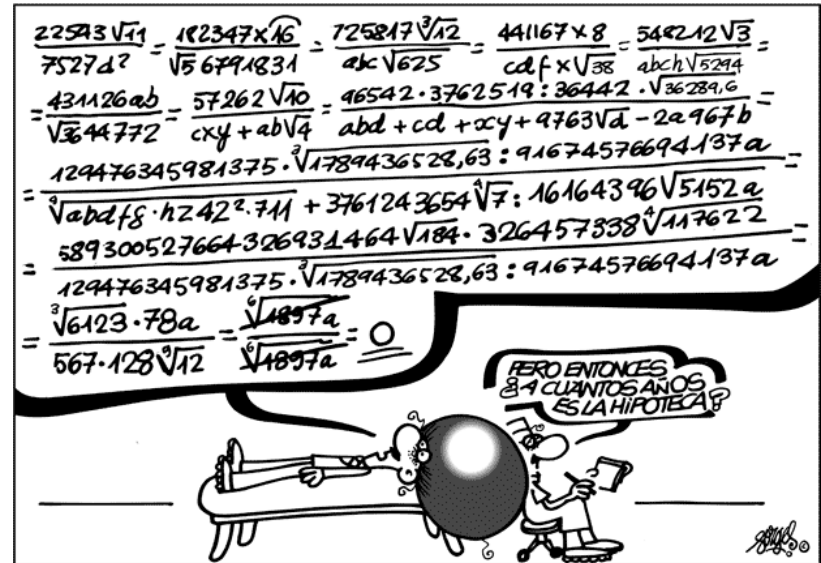 22543√11/7527d² = 182347×16/√5 6791831 = 725817∛12/abc√625 = 441167×8/cdf×√38 = 548212√3/abch√5294 =
= 431126ab/√3644772 = 57262√10/cxy+ab√4 = 96542·3762519:36442·√36289,6/abd+cd+xy+9763√d-2a967b =
= 129476345981375·∛1789436528,63:91674576694137a/∜abdfg·hz42²·711+3761243654∜7:16164396√5152a =
= 58930052766432693 1464√184·326457338∜117622/129476345981375·∛1789436528,63:91674576694137a =
= ∛6123·78a/567·128∛12 = ⁶√1897a/⁶√1897a = 0
PERO ENTONCES
¿A CUÁNTOS AÑOS
ES LA HIPOTECA?
forges ©